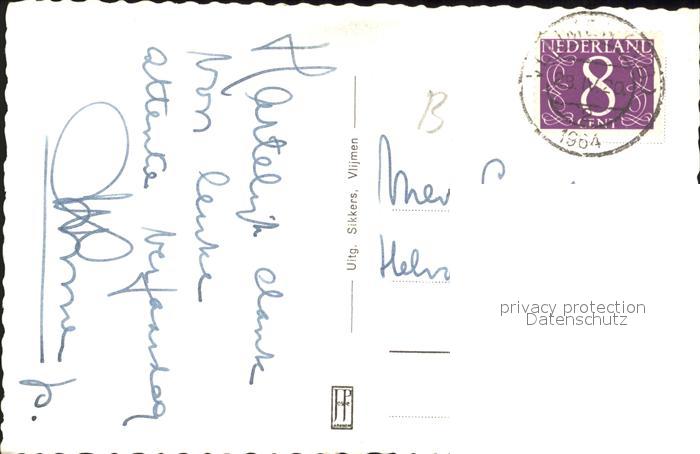 Hartelijk dank
voor leuke
attentie verjaardag
p.
Uitg. Sikkers, Vlijmen
B
Mev
NEDERLAND
8
CENT
1964
privacy protection
Datenschutz